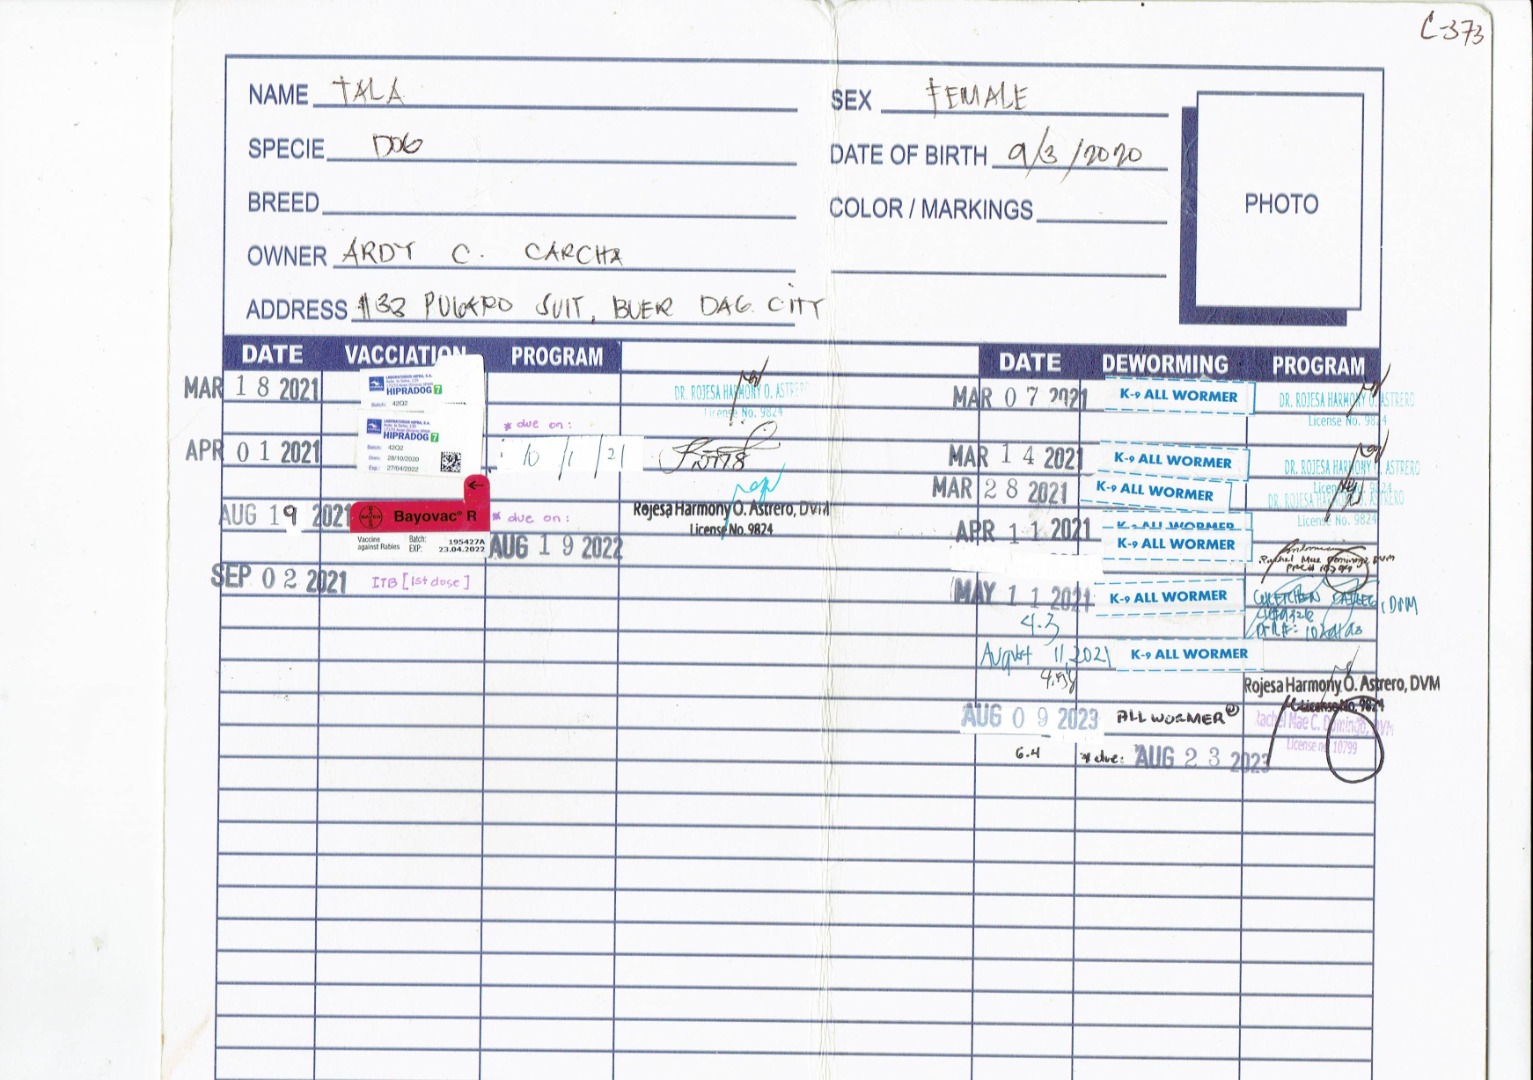 C-373
NAME TALA
SEX FEMALE
SPECIE DOG
DATE OF BIRTH 9/3/2020
BREED
COLOR / MARKINGS
PHOTO
OWNER ARDY C. CARCHA
ADDRESS #33 PUGARO SUIT, BUER DAG. CITY
DATE VACCIATION PROGRAM
DATE DEWORMING PROGRAM
MAR 18 2021
LABORATORIOS HIPRA, S.A.
HIPRADOG 7
Batch: 42Q2
DR. ROJESA HARMONY O. ASTRERO
License No. 9824
MAR 07 2021 K-9 ALL WORMER
DR. ROJESA HARMONY O. ASTRERO
License No. 9824
APR 01 2021
LABORATORIOS HIPRA, S.A.
HIPRADOG 7
Batch: 42Q2
Date: 28/10/2020
Exp.: 27/04/2022
* due on:
10/1/21
MAR 14 2021 K-9 ALL WORMER
DR. ROJESA HARMONY O. ASTRERO
License No. 9824
MAR 28 2021 K-9 ALL WORMER
DR. ROJESA HARMONY O. ASTRERO
License No. 9824
AUG 19 2021
BAYER
Bayovac® R
Vaccine against Rabies
Batch: 195427A
EXP: 23.04.2022
* due on:
AUG 19 2022
Rojesa Harmony O. Astrero, DVM
License No. 9824
APR 11 2021 K-9 ALL WORMER
K-9 ALL WORMER
Rachel Mae Domingo, DVM
SEP 02 2021 ITB [1st dose]
MAY 11 2021 K-9 ALL WORMER
4.3
, DVM
August 11, 2021 K-9 ALL WORMER
Rojesa Harmony O. Astrero, DVM
License No. 9824
AUG 09 2023 ALL WORMER
Rachel Mae C. Domingo, DVM
License no 10799
6.4
* due: AUG 23 2023